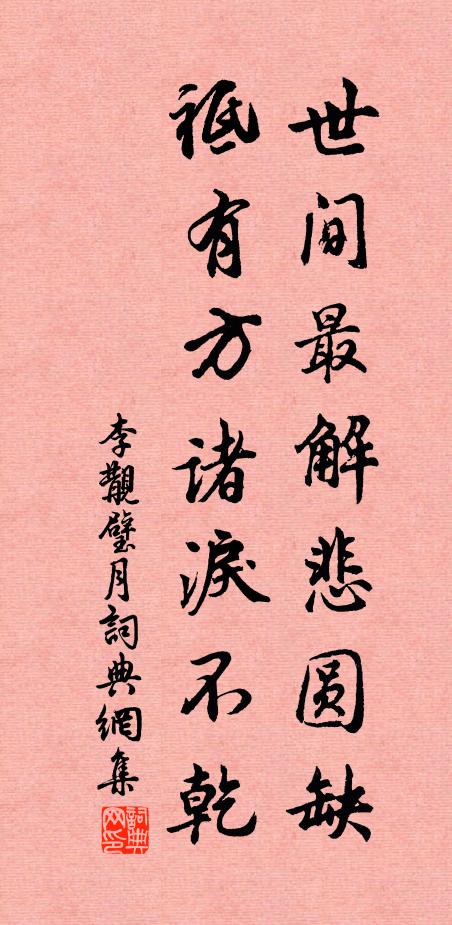 世间最解悲圆缺
祗有方诸淚不乾
李觀璧月詞典網集
詞典网印